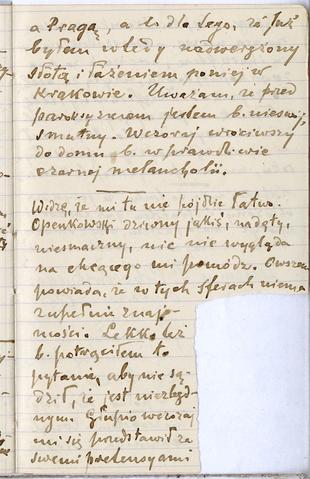 a Pragą, a to dla tego, że już
byłem wtedy nadwerężony
słotą i łażeniem po niej w
Krakowie. Uważam, że przed
paroksyzmem jestem b. nieswój,
smutny. Wczoraj wróciwszy
do domu b. w prawdziwie
czarnej melancholii.
Widzę, że mi tu nie pójdzie łatwo.
Openkowski dziwny jakiś, nadęty,
niesmaczny, nic nie wygląda
na chcącego mi pomódz. Owszem
powiada, że w tych sferach niema
zupełnie znajo-
mości. Lekko też
b. potrąciłem to
pytanie, aby nie są-
dził, że jest niezbęd-
nym. Głupio wczoraj
mi się przedstawił ze
swemi pretensyami